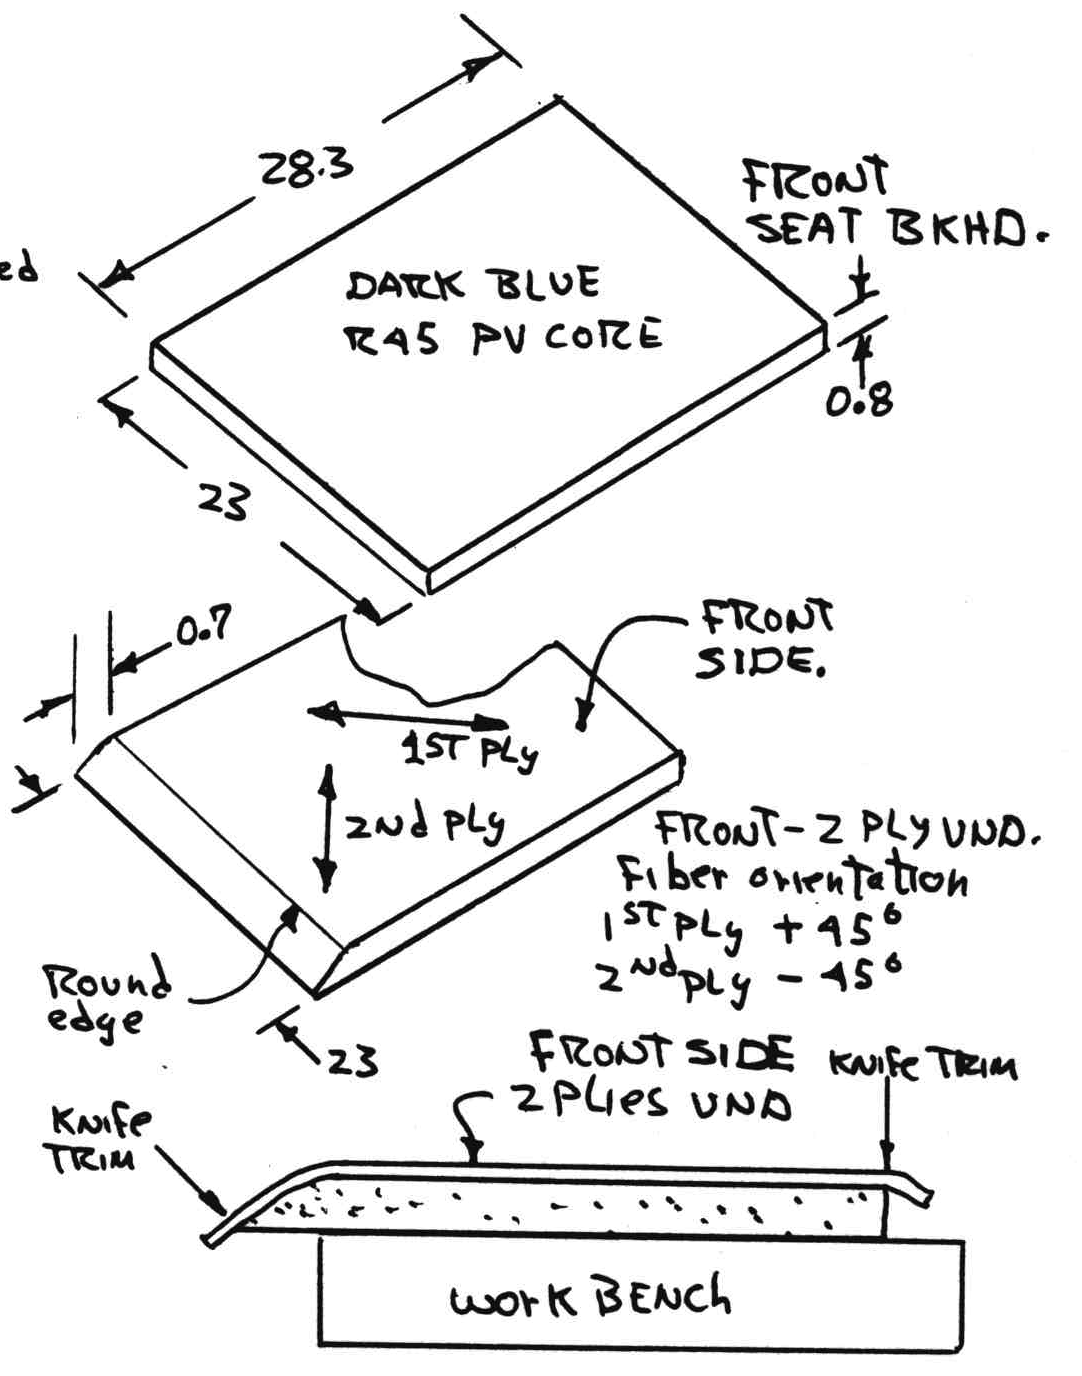 28.3
FRONT
SEAT BKHD.
ed
DARK BLUE
R45 PV CORE
0.8
23
0.7
FRONT
SIDE.
1ST PLy
2Nd PLy
FRONT-2 PLY UND.
Fiber orientation
1ST PLy + 45°
2Nd PLy - 45°
Round
edge
23
FRONT SIDE
2 PLies UND
KNife TRIM
KNife
TRIM
work BENCh